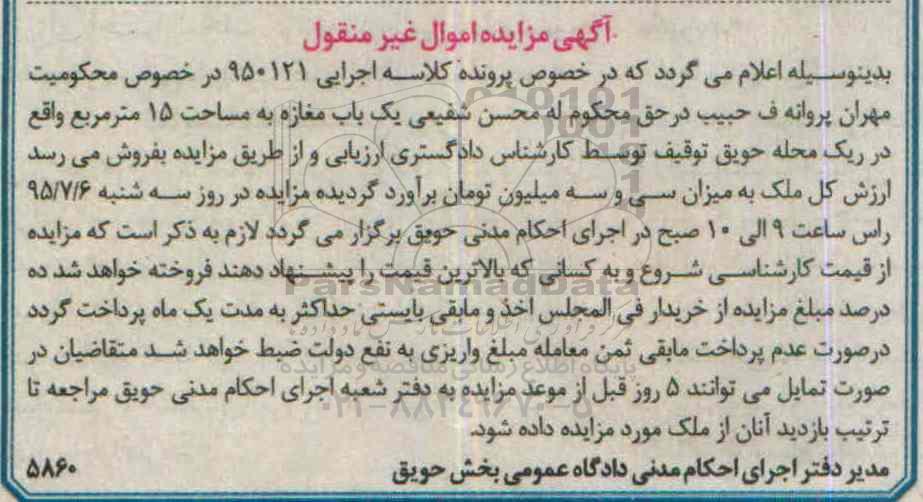 آگهی مزایده اموال غیر منقول
بدینوسیله اعلام می گردد که در خصوص پرونده کلاسه اجرایی ۹۵۰۱۲۱ در خصوص محکومیت
مهران پروانه ف حبیب درحق محکوم له محسن شفیعی یک باب مغازه به مساحت ۱۵ مترمربع واقع
در ریک محله حویق توقیف توسط کارشناس دادگستری ارزیابی و از طریق مزایده بفروش می رسد
ارزش کل ملک به میزان سی و سه میلیون تومان برآورد گردیده مزایده در روز سه شنبه ۹۵/۷/۶
راس ساعت ۹ الی ۱۰ صبح در اجرای احکام مدنی حویق برگزار می گردد لازم به ذکر است که مزایده
از قیمت کارشناسی شروع و به کسانی که بالاترین قیمت را پیشنهاد دهند فروخته خواهد شد ده
درصد مبلغ مزایده از خریدار فی المجلس اخذ و مابقی بایستی حداکثر به مدت یک ماه پرداخت گردد
درصورت عدم پرداخت مابقی ثمن معامله مبلغ واریزی به نفع دولت ضبط خواهد شد متقاضیان در
صورت تمایل می توانند ۵ روز قبل از موعد مزایده به دفتر شعبه اجرای احکام مدنی حویق مراجعه تا
ترتیب بازدید آنان از ملک مورد مزایده داده شود.
مدیر دفتر اجرای احکام مدنی دادگاه عمومی بخش حویق ۵۸۶۰
ParsNamadData
پایگاه اطلاع رسانی مناقصه و مزایده
۰۲۱-۸۸۳۴۹۶۷۰-۵